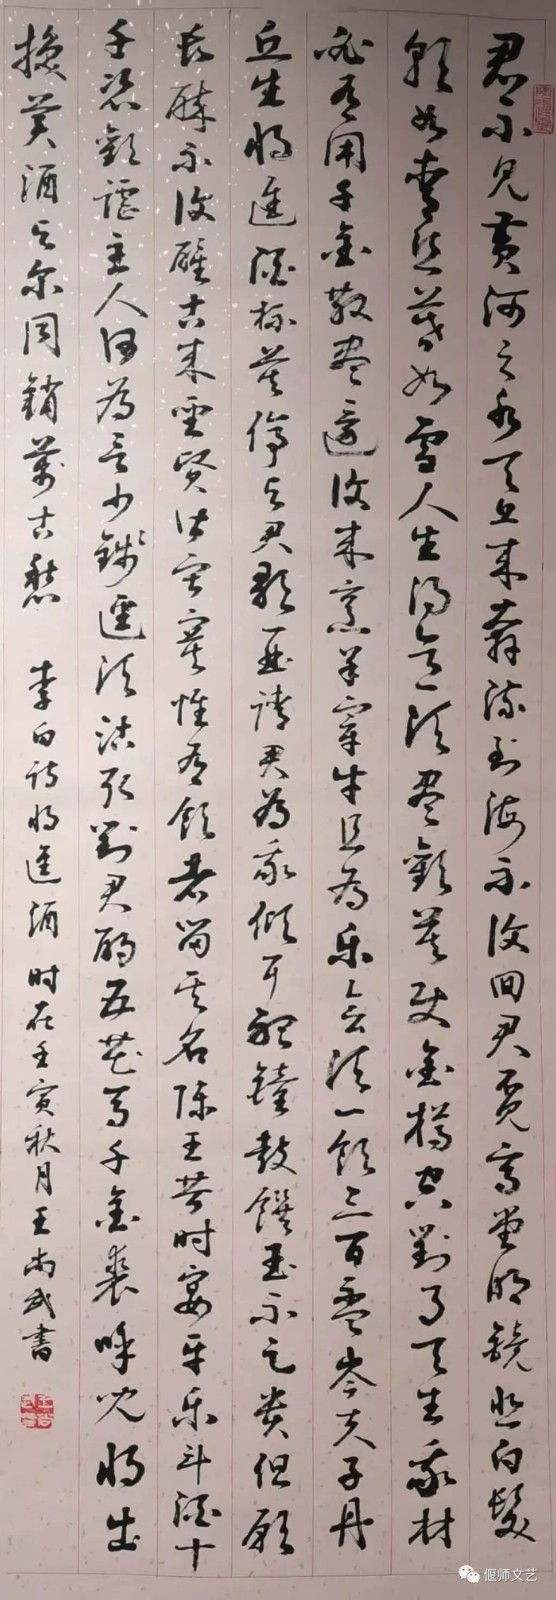 君不见黄河之水天上来奔流到海不復回君不见高堂明镜悲白髮
朝如青丝暮如雪人生得意须尽歡莫使金樽空對月天生我材
必有用千金散尽還復来烹羊宰牛且为乐会须一饮三百杯岑夫子丹
丘生将進酒杯莫停与君歌一曲請君为我倾耳聽鐘鼓饌玉不足贵但願
长醉不復醒古来聖贤皆寂寞惟有饮者留其名陈王昔时宴平乐斗酒十
千恣歡謔主人何为言少錢逕须沽取對君酌五花马千金裘呼兒将出
换美酒与尔同銷萬古愁 李白诗将進酒 时在壬寅秋月王尚武書
偃师文艺